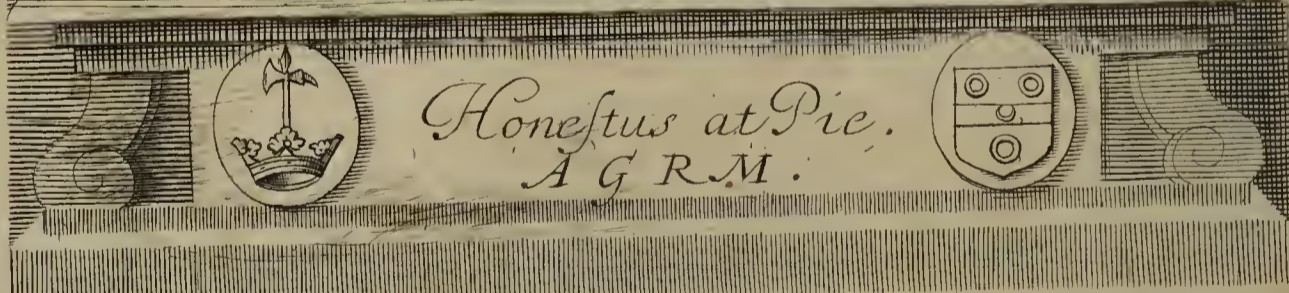 Honeſtus at Pie.
A G R M .